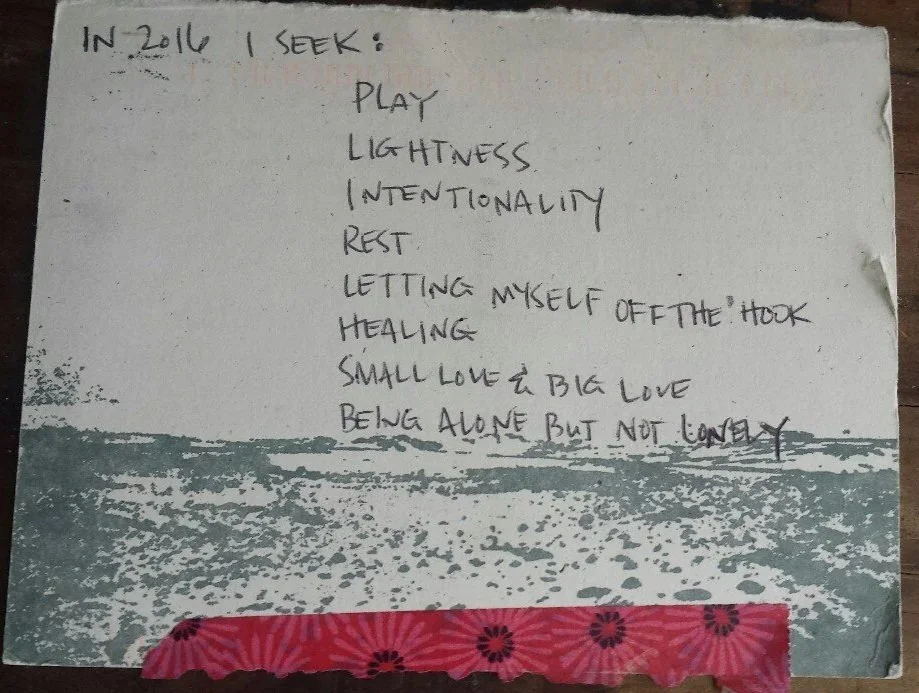 IN 2016 I SEEK:
PLAY
LIGHTNESS
INTENTIONALITY
REST
LETTING MYSELF OFF THE HOOK
HEALING
SMALL LOVE & BIG LOVE
BEING ALONE BUT NOT LONELY